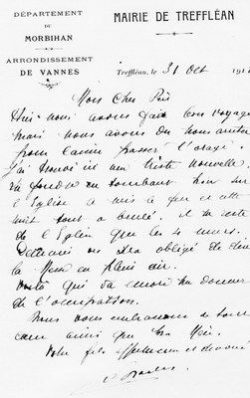 DÉPARTEMENT
DU
MORBIHAN
MAIRIE DE TREFFLÉAN
ARRONDISSEMENT
DE VANNES
Treffléan, le 31 Oct 191
Mon Cher
nous avons fait bon voyage
mais nous avons dû nous
pour laisser passer l'orage.
J'ai trouvé ici une triste nouvelle.
La foudre en tombant hier sur
l'Eglise a mis le feu et cette
nuit tout a brulé. Il ne reste
de l'Eglise que les 4 murs.
on sera obligé de
la Messe en plein air.
Voilà qui va encore me donner
de l'occupation.
Nous vous embrassons de tout
cœur ainsi que
Votre fils affectueux et dévoué